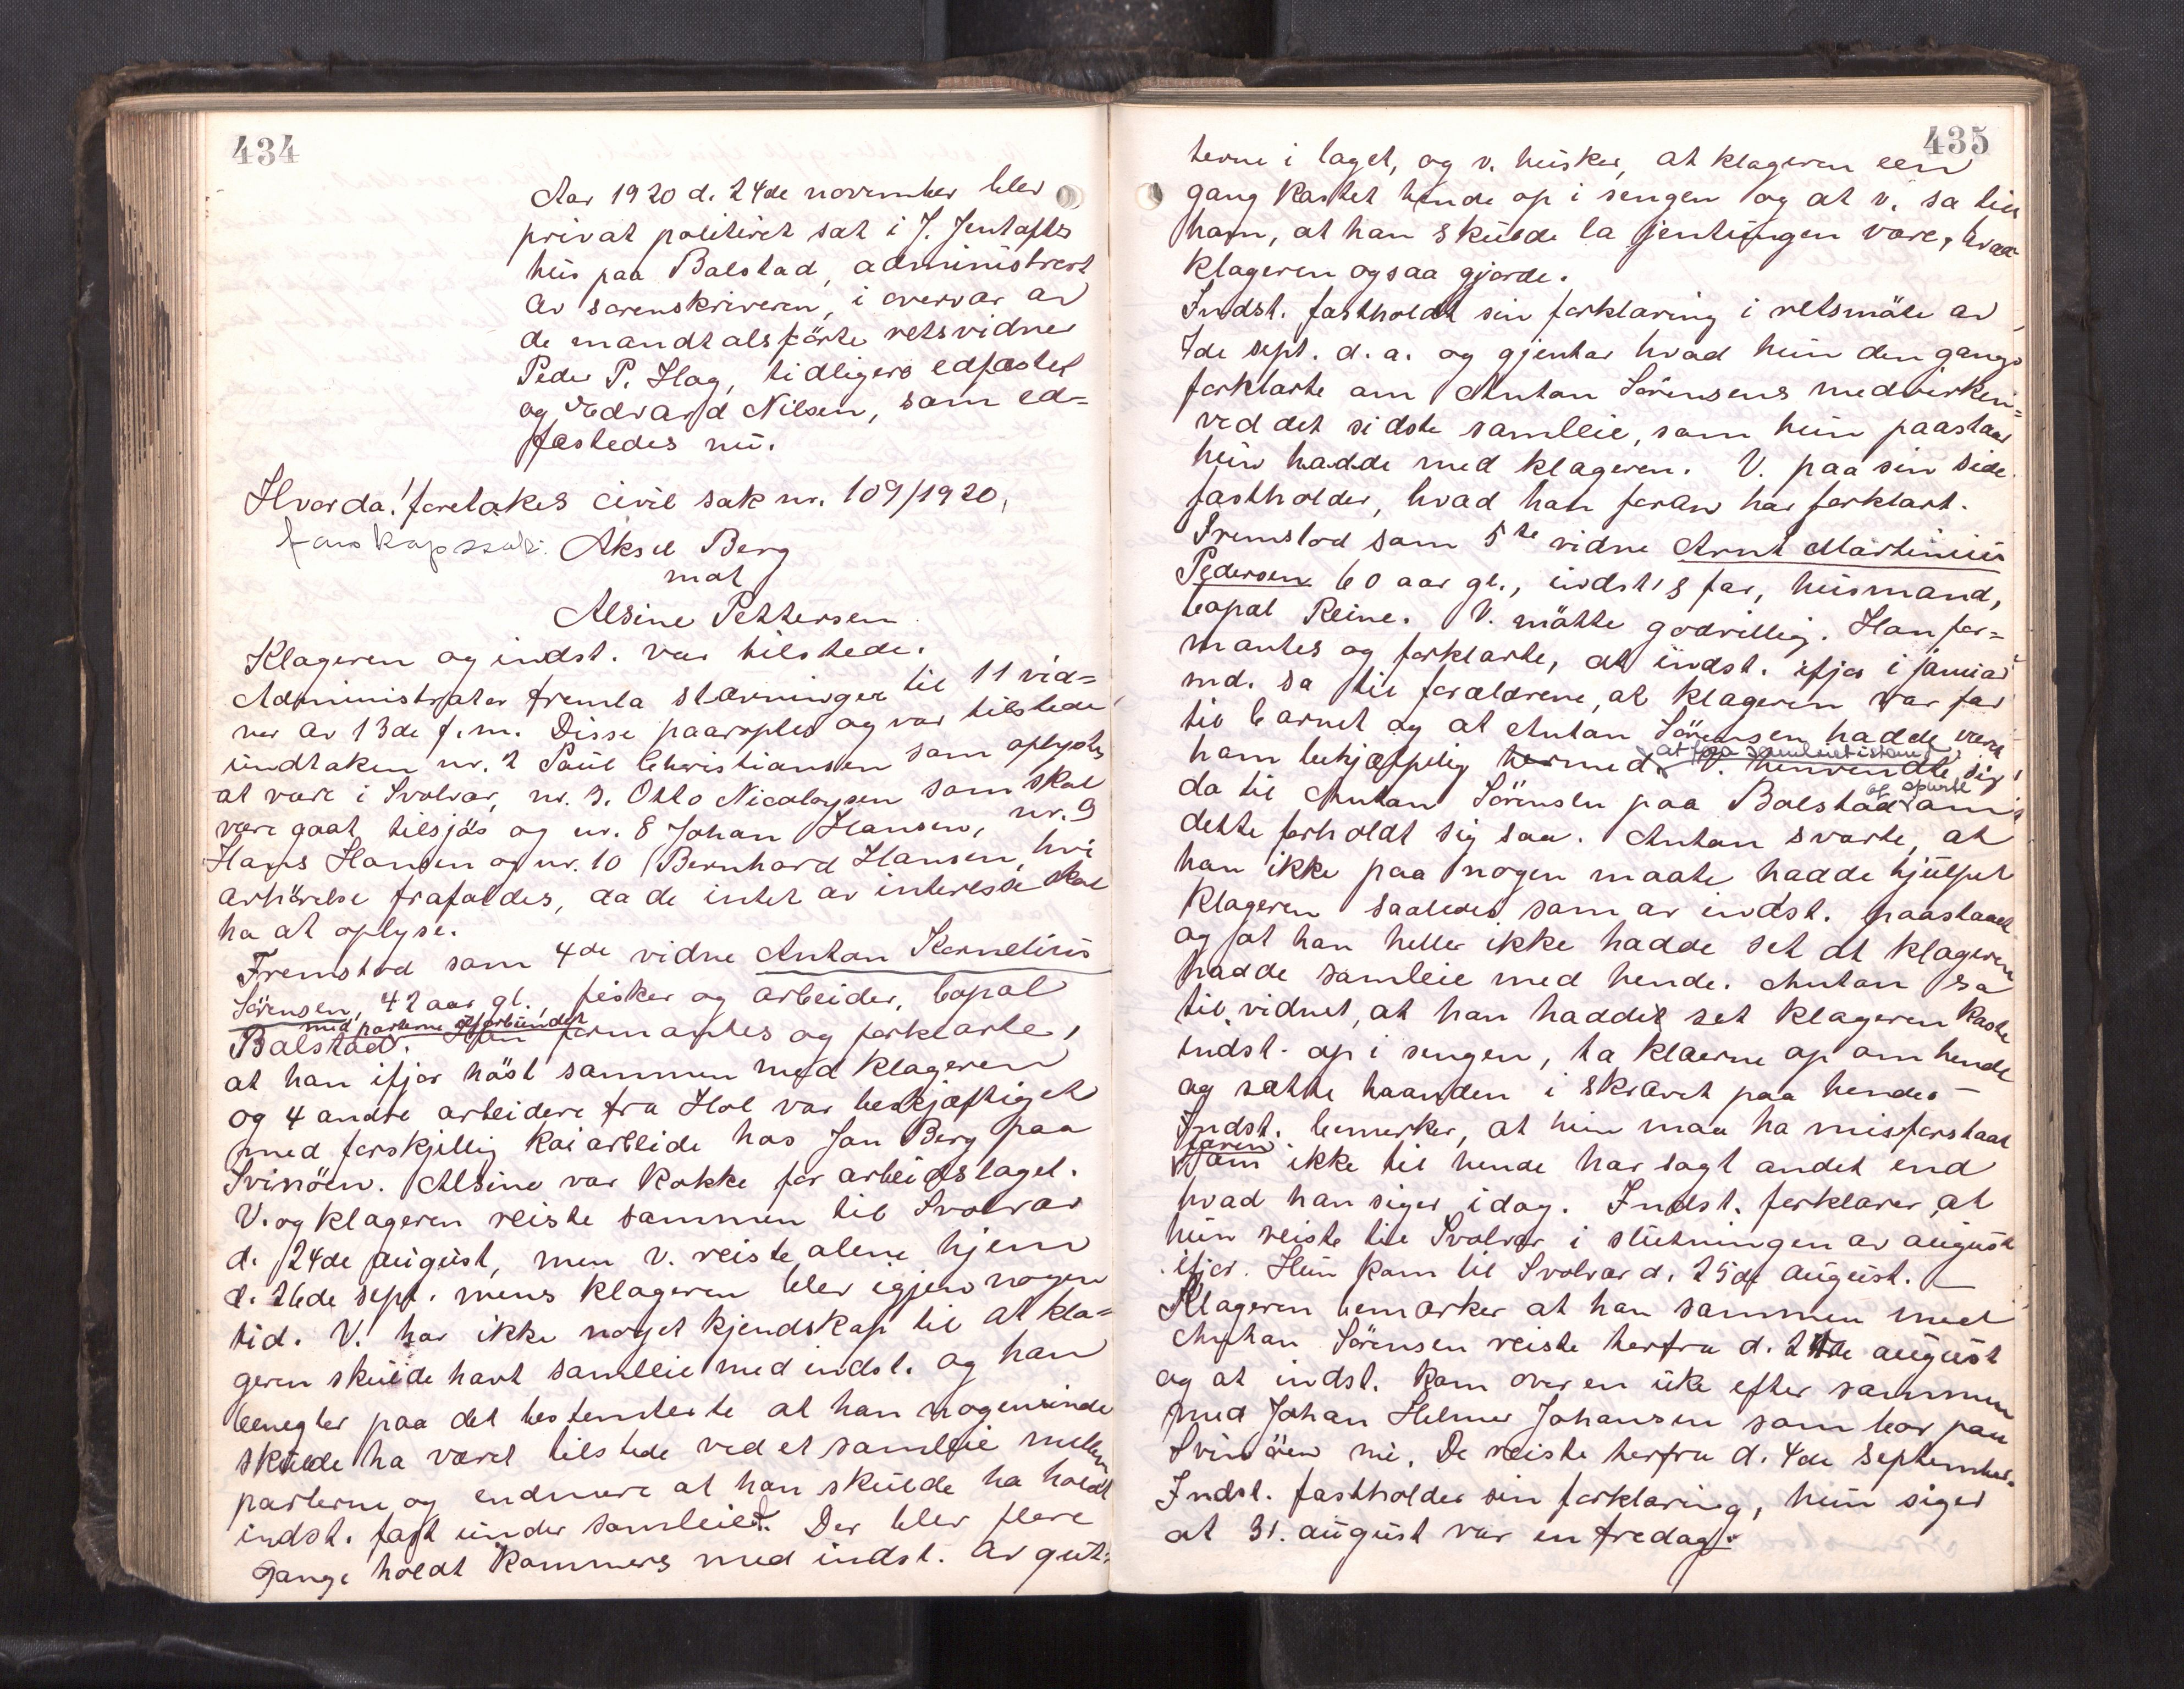 434
Aar 1920 d. 24de november blev
privat politiret sat i J. Jentoftes
hus paa Balstad, administrert
av sorenskriveren, i overvær av
de mandtalsførte retsvidner
Peder P. Hag, tidligere edfæstet
og Edvard Nilsen, som ed=
fæstedes nu.
Hvorda! foretakes civil sak nr. 109/1920,
farskapssak. Aksel Berg
mot
Alsine Pettersen
Klageren og indst. var tilstede.
Administrator fremla stævninger til 11 vid=
ner av 13de f.m. Disse paaroptes og var tilstede
undtaken nr. 2 Paul Christiansen som oplystes
at være i Svolvær, nr. 3. Otto Nicolaysen som skal
være gaat tilsjøs og nr. 8 Johan Hansen, nr. 9
Hans Hansen og nr. 10 Bernhard Hansen, hvis
avhörelse frafaldes, da de intet av interesse skal
ha at oplyse.
Fremstod som 4de vidne Anton Kornelius
Sörensen, 42 aar gl., fisker og arbeider, bopæl
med parterne uforbundet
Balstad. Han formantes og forklarte,
at han ifjor höst sammen med klageren
og 4 andre arbeidere fra Hol var beskjæftiget
med forskjellig kaiarbeide hos Jan Berg paa
Svinöen. Alsine var kokke for arbeidslaget.
V. og klageren reiste sammen til Svolvær
d. 24de august, men v. reiste alene hjem
d. 26de sept. mens klageren blev igjen nogen
tid. V. har ikke noget kjendskap til at kla=
geren skulde havt samleie med indst. og han
benegter paa det bestemteste at han nogensinde
skulde ha været tilstede ved et samleie mellem
parterne og endmere at han skulde ha holdt
indst. fast under samleiet. Der blev flere
gange holdt kommers med indst. av gut=
435
terne i laget, og v. husker, at klageren een
gang kastet hende op i sengen og at v. sa til
ham, at han skulde la jentungen være, hvad
klageren ogsaa gjorde.
Indst. fastholdt sin forklaring i retsmöte av
7de sept. d.a. og gjentar hvad hun den gang
forklarte om Anton Sörensens medvirken
ved det sidste samleie, som hun paastaar
hun hadde med klageren. V. paa sin side
fastholder, hvad han foran har forklart.
Fremstod som 5te vidne Arnt Martinius
Pedersen 60 aar gl., indst's far, husmand,
bopæl Reine. V. mötte godvillig. Han for=
mantes og forklarte, at indst. ifjor i januar
md. sa til forældrene, at klageren var far
til barnet og at Anton Sörensen hadde været
at faa samleiet istand
ham behjælpelig hermed. V. henvendte sig
og spurte
da til Anton Sörensen paa Balstad om
dette forholdt sig saa. Anton svarte, at
han ikke paa nogen maate hadde hjulpet
klageren saaledes som av indst. paastaaet
og at han heller ikke hadde set at klageren
hadde samleie med hende. Anton sa
til vidnet, at han hadde set klageren kaste
indst. op i sengen, ta klærne op om hende
og sætte haanden i skrævet paa hende. –
Indst. bemerker, at hun maa ha misforstaat
faren
som ikke til hende har sagt andet end
hvad han siger idag. Indst. forklarer, at
hun reiste til Svolvær i slutningen av august
ifjor. Hun kom til Svolvær d. 25de august. –
Klageren bemærker at han sammen med
Anton Sörensen reiste herfra d. 24de august
og at indst. kom over en uke efter sammen
med Johan Helmer Johansen som bor paa
Svinöen nu. De reiste herfra d. 4de september.
Indst. fastholder sin forklaring, hun siger
at 31. august var en fredag.